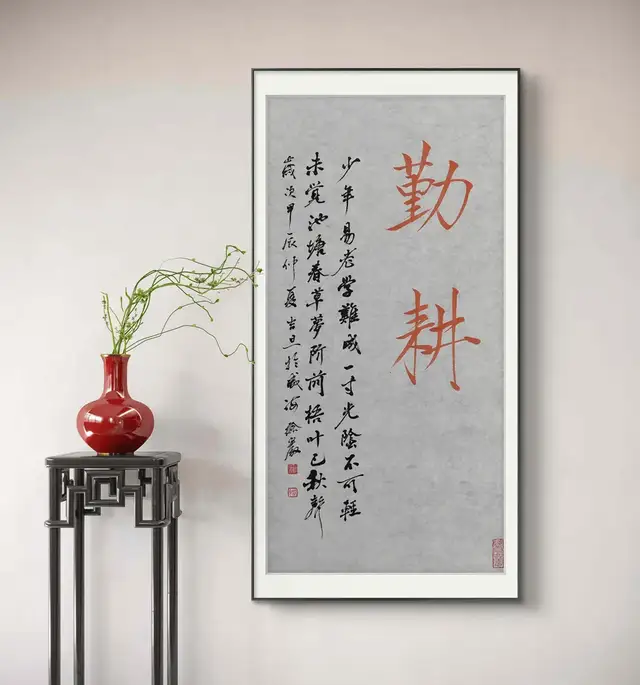 勤耕
少年易老學難成一寸光陰不可輕
未覺池塘春草夢阶前梧叶已秋聲
歲次甲辰仲夏吉旦於威海徐嚴